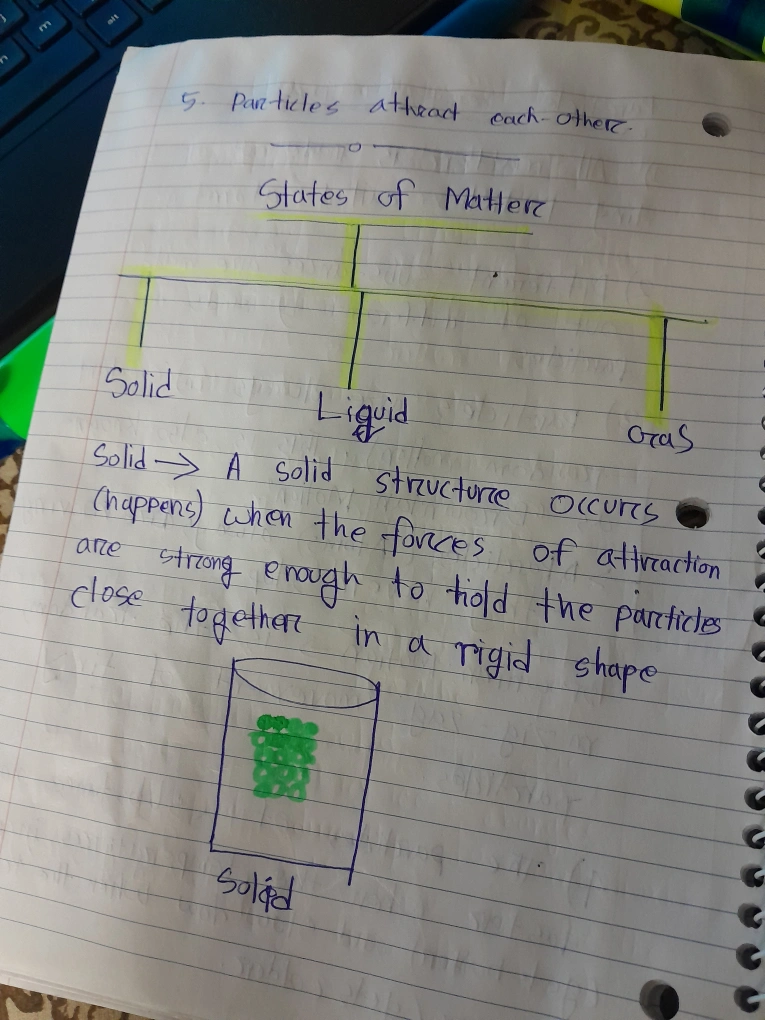 5. Particles attract each-other.
States of Matter
Solid
Liquid
Gas
Solid → A solid structure occurs
(happens) when the forces of attraction
are strong enough to hold the particles
close together in a rigid shape
Solid